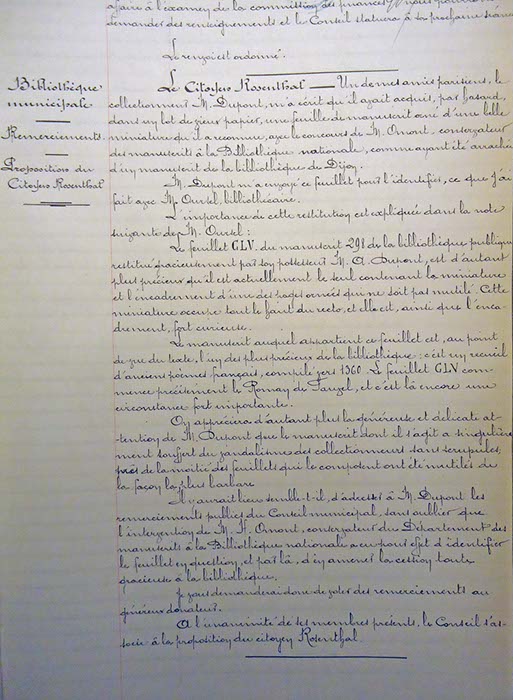 affaire à l'examen de la commission des finances
demander des renseignements et le Conseil statuera à sa prochaine séance
Le renvoi est ordonné.
Bibliothèque
municipale
Remerciements
Proposition du
Citoyen Rosenthal
Le Citoyen Rosenthal — Un de mes amis parisiens, le
collectionneur M. Dupont, m'a écrit qu'il avait acquis, par hasard,
dans un lot de vieux papier, une feuille de manuscrit orné d'une belle
miniature qu'il a reconnue, avec le concours de M. Omont, conservateur
des manuscrits à la Bibliothèque nationale, comme ayant été arrachée
d'un manuscrit de la bibliothèque de Dijon.
M. Dupont m'a envoyé ce feuillet pour l'identifier, ce que j'ai
fait avec M. Oursel, bibliothécaire.
L'importance de cette restitution est expliquée dans la note
suivante de M. Oursel :
Le feuillet CLV. du manuscrit 298 de la bibliothèque publique
restitué gracieusement par son possesseur M. A. Dupont, est d'autant
plus précieux qu'il est actuellement le seul contenant la miniature
et l'encadrement d'une des pages ornées qui ne soit pas mutilé. Cette
miniature occupe tout le haut du recto, et elle est, ainsi que l'enca-
drement, fort curieuse.
Le manuscrit auquel appartient ce feuillet est, au point
de vue du texte, l'un des plus précieux de la bibliothèque : c'est un recueil
d'anciens poèmes français, compilé vers 1360. Le feuillet CLV com-
mence précisément le Roman de Fauvel, et c'est là encore une
circonstance fort importante.
On appréciera d'autant plus la généreuse et délicate at-
tention de M. Dupont que le manuscrit dont il s'agit a singulière
ment souffert du vandalisme des collectionneurs sans scrupules;
près de la moitié des feuillets qui le composent ont été mutilés de
la façon la plus barbare
Il y aurait lieu semble-t-il, d'adresser à M. Dupont les
remerciements publics du Conseil municipal, sans oublier que
l'intervention de M. H. Omont, conservateur du Département des
manuscrits à la Bibliothèque nationale a eu pour effet d'identifier
le feuillet en question, et par là, d'en amener la cession toute
gracieuse à la bibliothèque.
Je vous demanderai donc de voter des remerciements au
généreux donateur.
A l'unanimité de ses membres présents, le Conseil s'as-
socie à la proposition du citoyen Rosenthal.